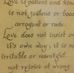 Love is patient and
is not jealous or boas
arrogant or rude.
Love does not insist on
it's own way; it is no
irritable or resentful
not rejoice at wrong